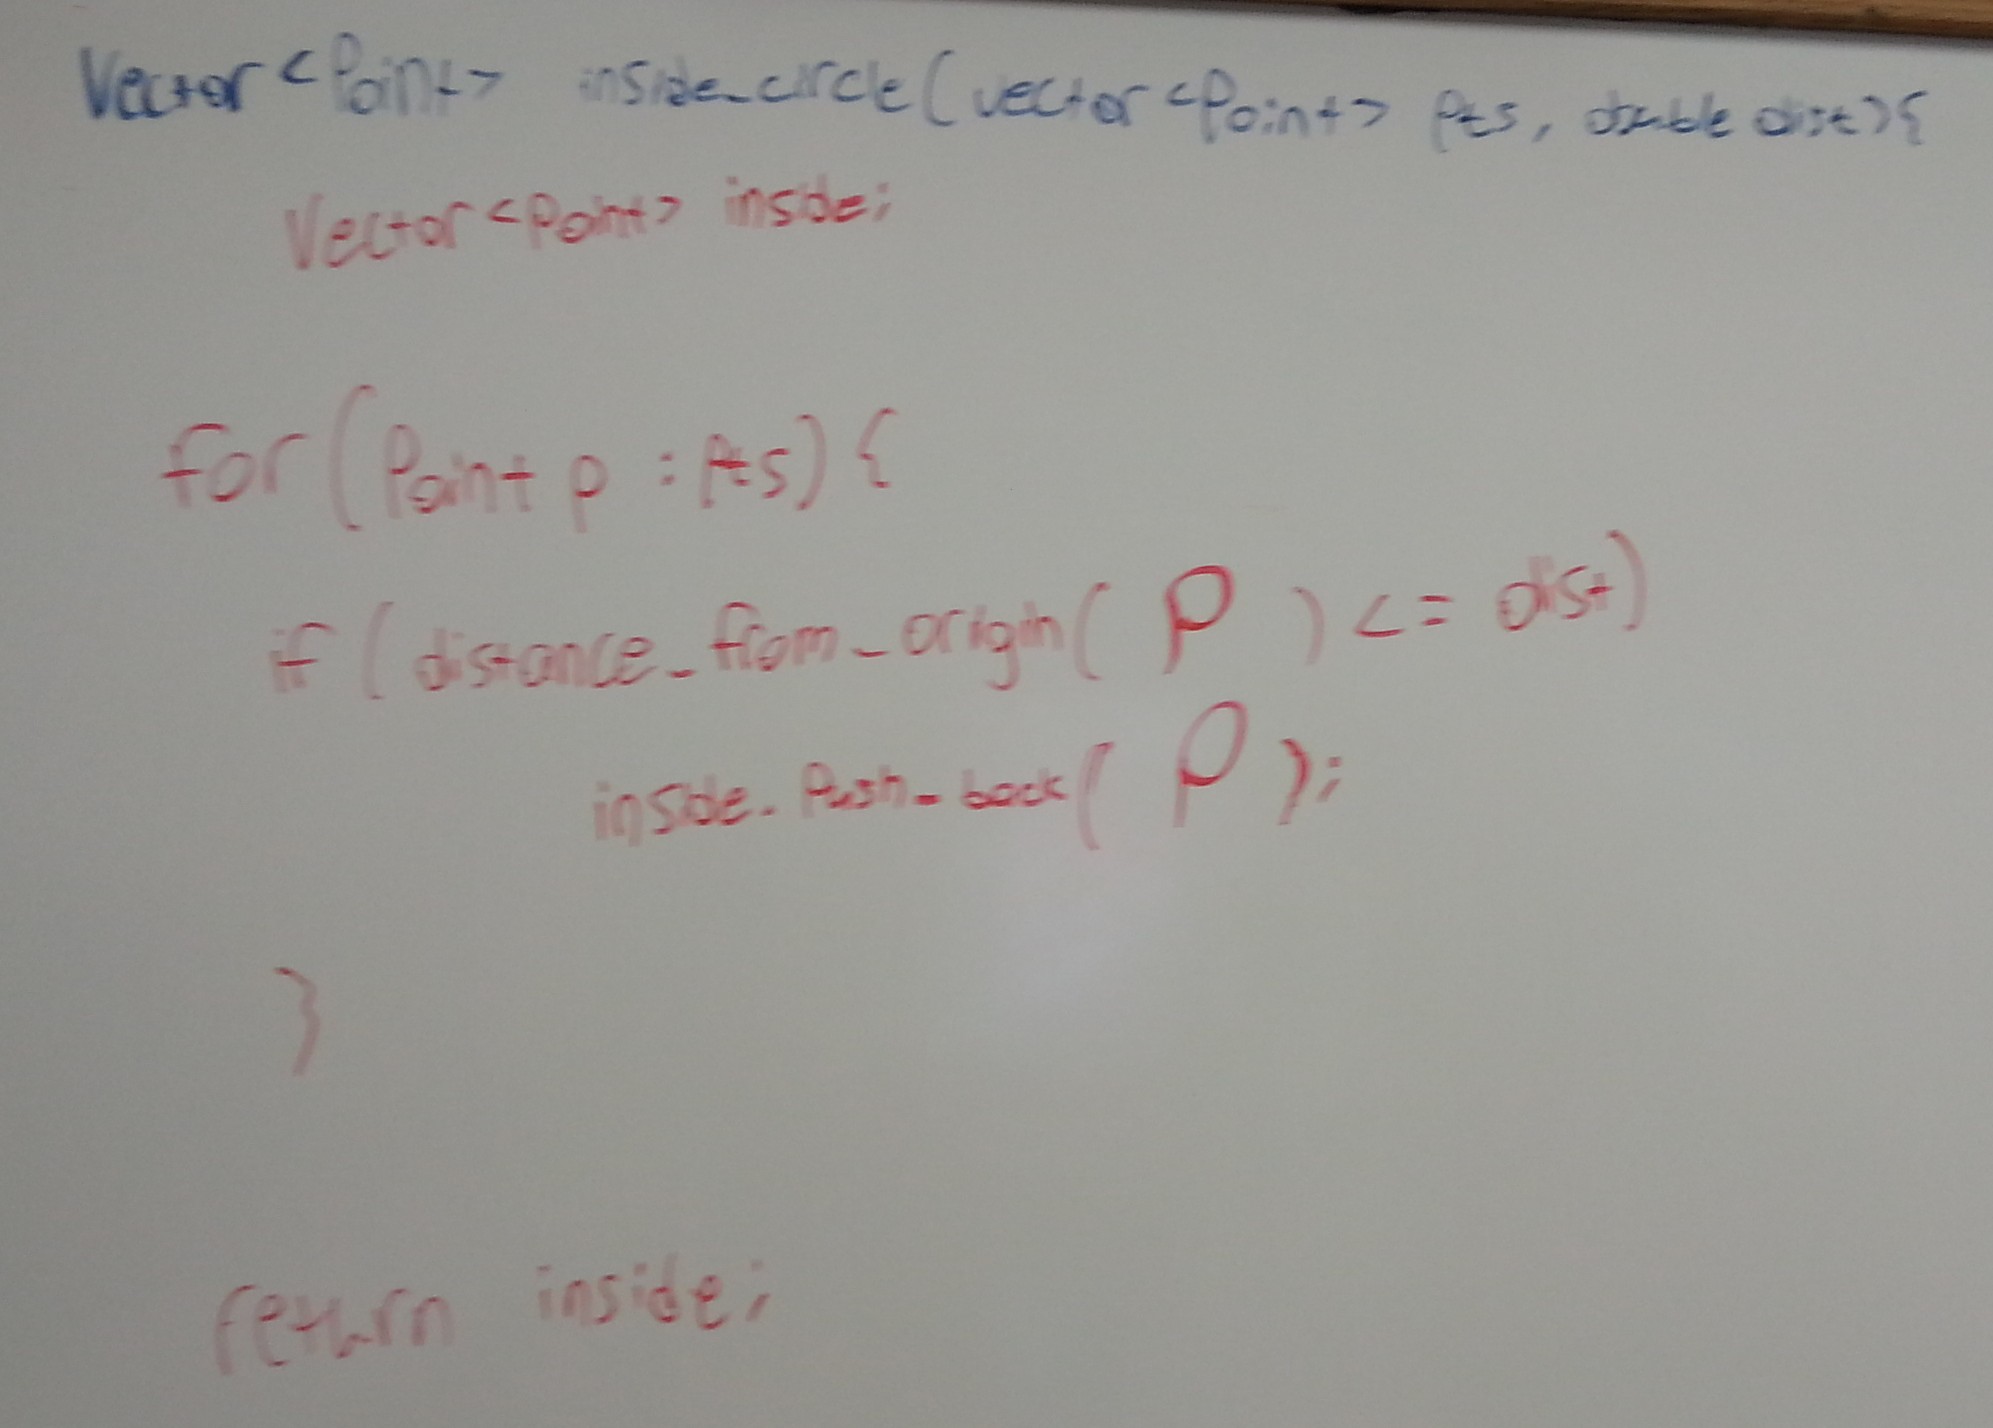 Vector<Point> inside_circle(vector<Point> pts, double dist){
Vector<Point> inside;
for(Point p : pts){
if(distance_from_origin( p ) <= dist)
inside.push_back( p );
}
return inside;